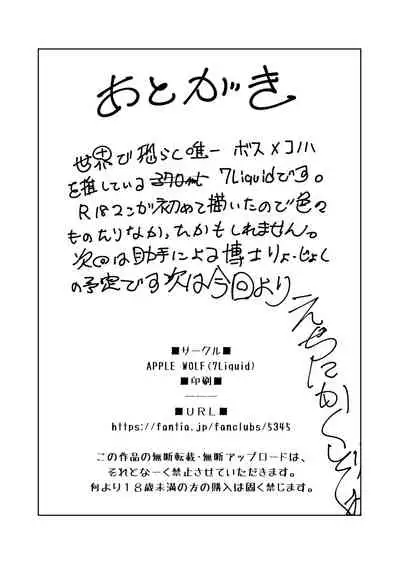 あとがき
世界で恐らく唯一 ボス×コハ
を推している 7Liquidです。
R18マンガ初めて描いたので色々
ものたりなかったかもしれません。
次回は助手による博士りょーじょく
の予定です次は今回より
えっちにかくぞ
■サークル■
APPLE WOLF(7Liquid)
■印刷■
―――
■URL■
https://fantia.jp/fanclubs/5345
この作品の無断転載・無断アップロードは、
それとな〜く禁止させていただきます。
何より18歳未満の方の購入は固く禁じます。